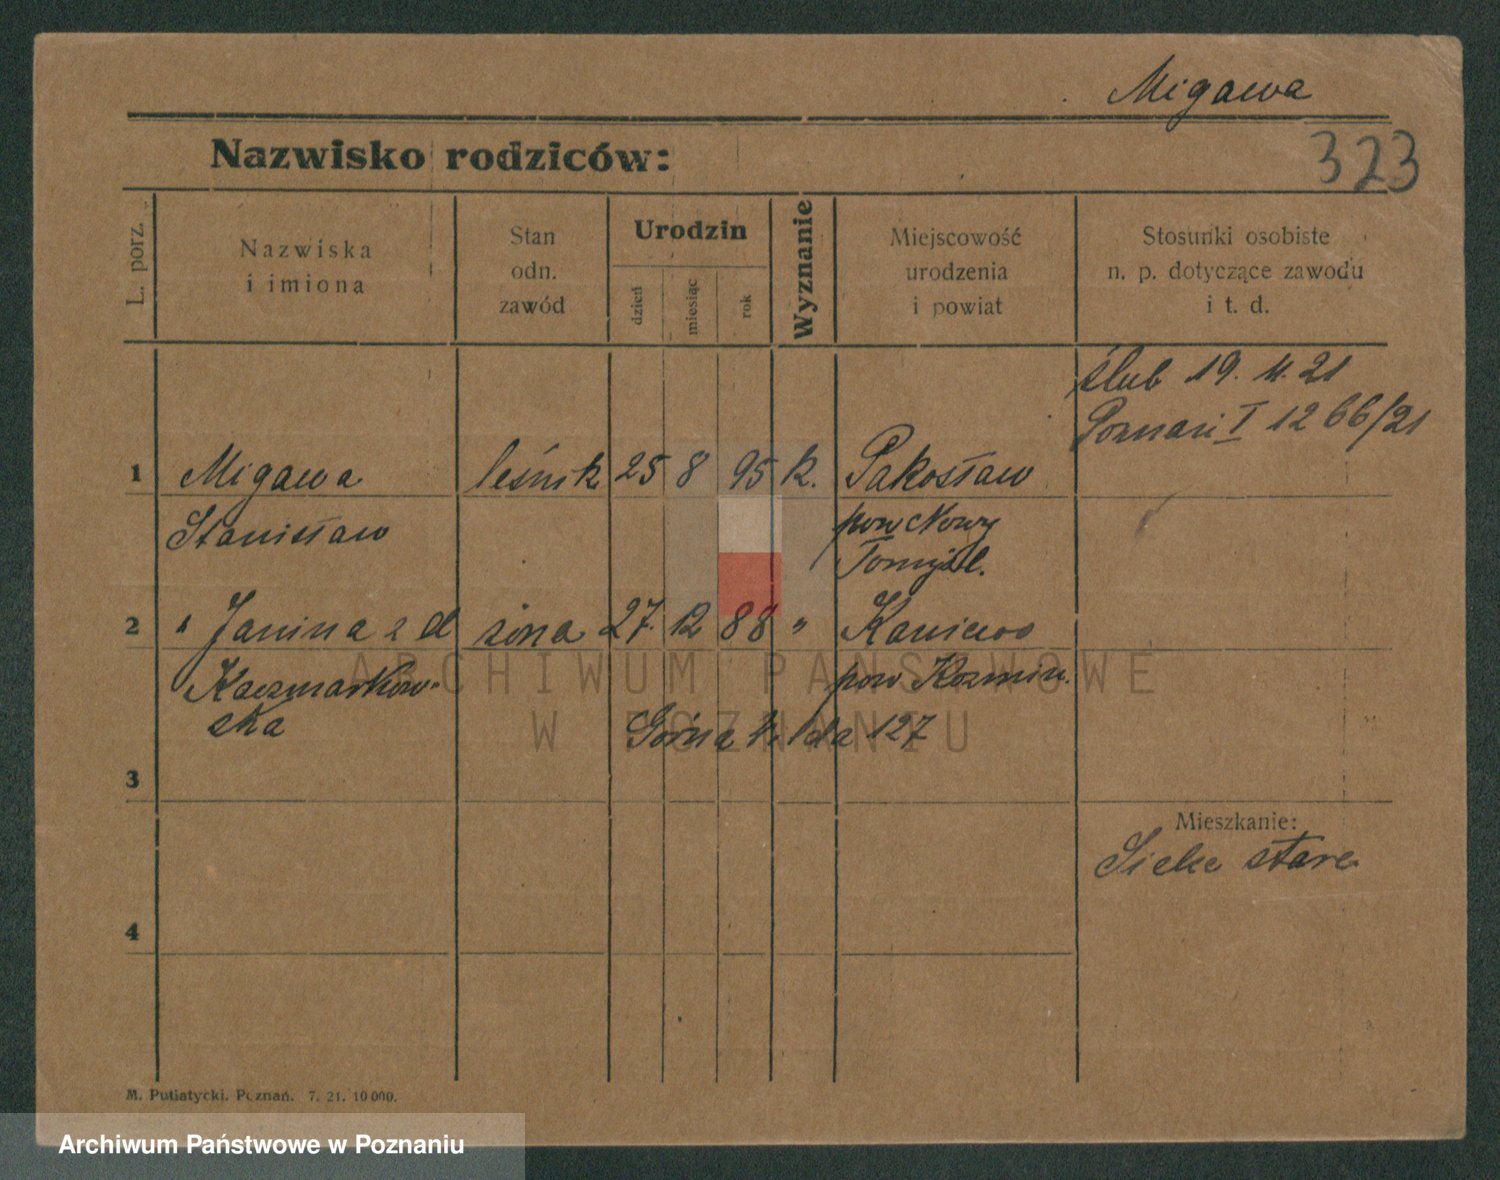 Migawa
323
Nazwisko rodziców:
L. porz.
Nazwiska
i imiona
Stan
odn.
zawód
Urodzin
dzień
miesiąc
rok
Wyznanie
Miejscowość
urodzenia
i powiat
Stosunki osobiste
n. p. dotyczące zawodu
i t. d.
ślub 19. 11. 21
Poznań I 1266/21
1 Migawa leśnik 25 8 95 k. Pakosław
Stanisław pow Nowy
Tomyśl.
2 " Janina z d żona 27. 12 88 "
Kaczmarkow-
ska
pow Kozmin.
Górna Wilda 127
3
Mieszkanie:
stare
4
M. Putiatycki. Poznań. 7. 21. 10 000.
ARCHIWUM PAŃSTWOWE
W POZNANIU
Archiwum Państwowe w Poznaniu